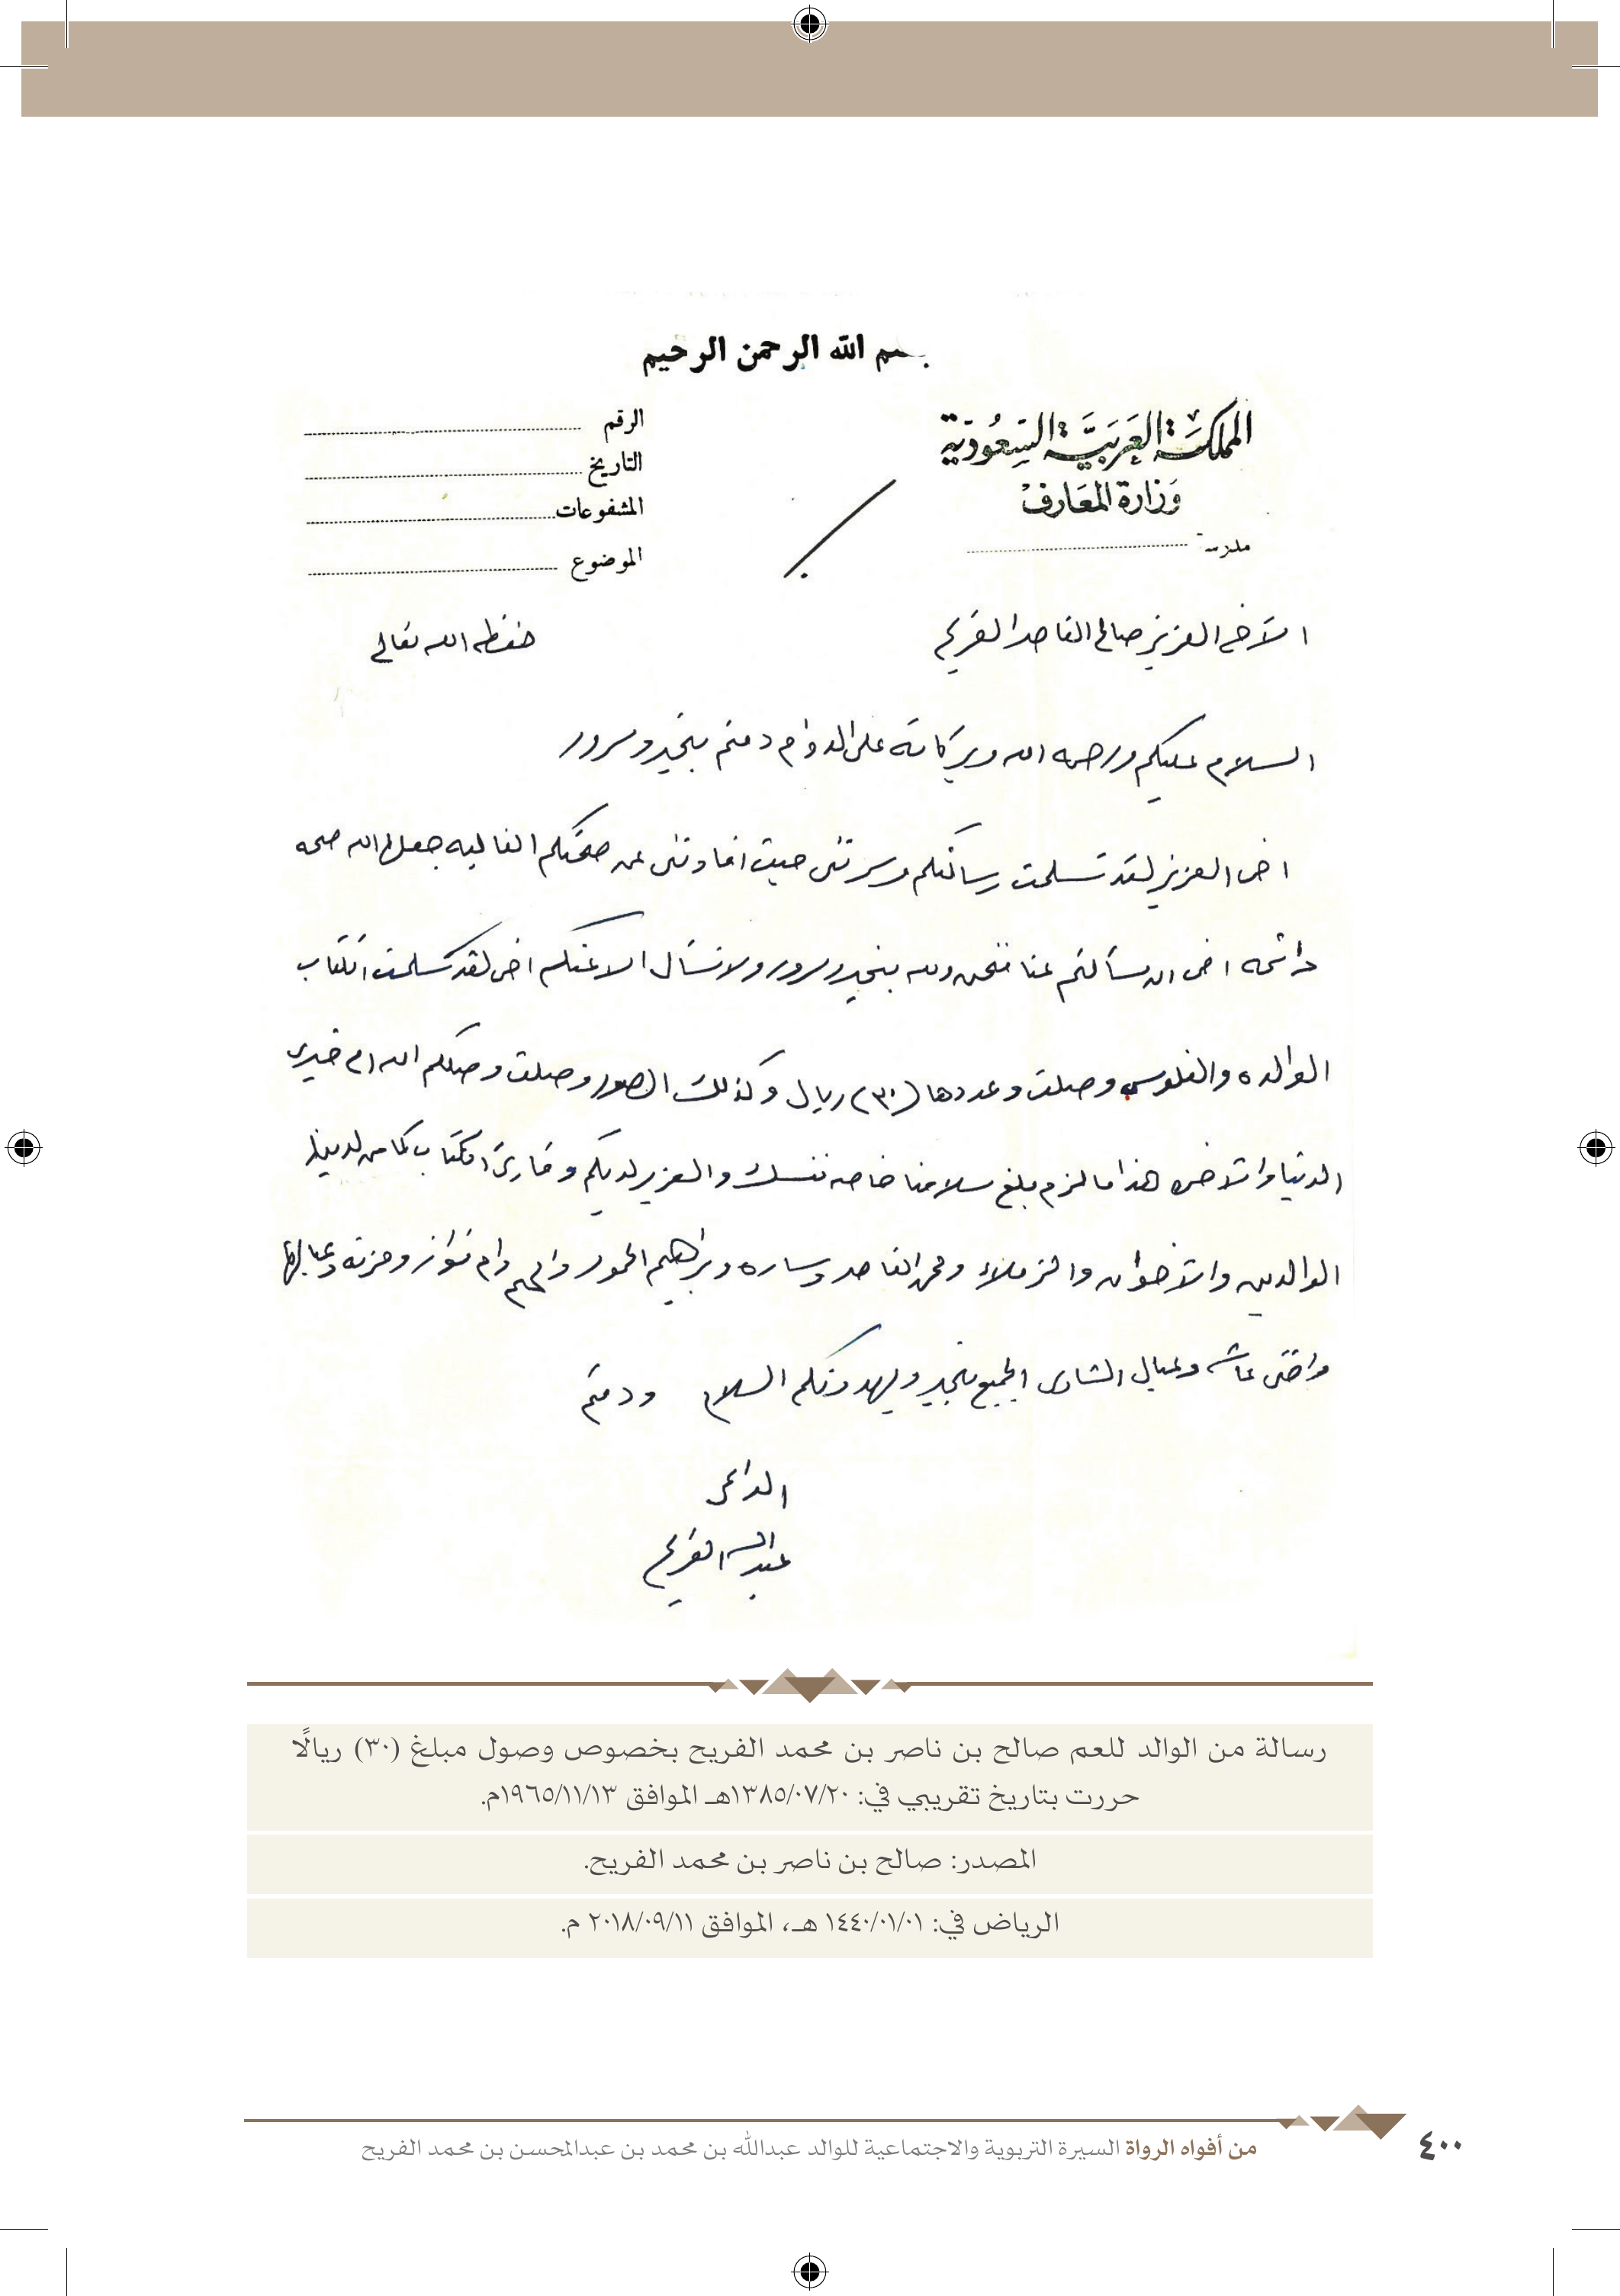 بسم الله الرحمن الرحيم
المملكة العربية السعودية
وزارة المعارف
مدرسة
الرقم
التاريخ
المشفوعات
الموضوع
الأخ العزيز صالح الناصر الفريح
حفظه الله تعالى
السلام عليكم ورحمه الله وبركاته على الدوام دمتم بخير وسرور
اخي العزيز لقد تسلمت رسالتكم وسرتني حيث افادتني عن صحتكم الغاليه جعلها الله صحه
دائمه اخي ان سألتم عنا فنحن ولله بخير وسرور ولا نسأل الا عنكم اخي لقد تسلمت الكتاب
الوالده والفلوس وصلت وعددها (٣٠) ريال وكذلك الصور وصلت وصلكم الله خيري
الدنيا والآخره هذا ما لزم بلغ سلامنا خاصه نفسك والعزيز لديكم وقارئ الكتاب كما من لدينا
الوالدين والأخوان والزملاء ومحمد الناصر وساره وبراهيم الحمود وام فواز ومزنه وعيالها
واختي عاشه وعيال الشاوي الجميع بخير ويهدونكم السلام ودمتم
الداعي
عبدالله الفريح
رسالة من الوالد للعم صالح بن ناصر بن محمد الفريح بخصوص وصول مبلغ (٣٠) ريالًا
حررت بتاريخ تقريبي في: ١٣٨٥/٠٧/٢٠هـ الموافق ١٩٦٥/١١/١٣م.
المصدر: صالح بن ناصر بن محمد الفريح.
الرياض في: ١٤٤٠/٠١/٠١ هـ، الموافق ٢٠١٨/٠٩/١١ م.
من أفواه الرواة السيرة التربوية والاجتماعية للوالد عبدالله بن محمد بن عبدالمحسن بن محمد الفريح
٤٠٠